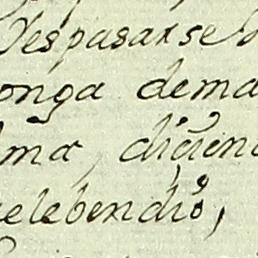 despasarse
onga dema
lma, diciend
elebendió,